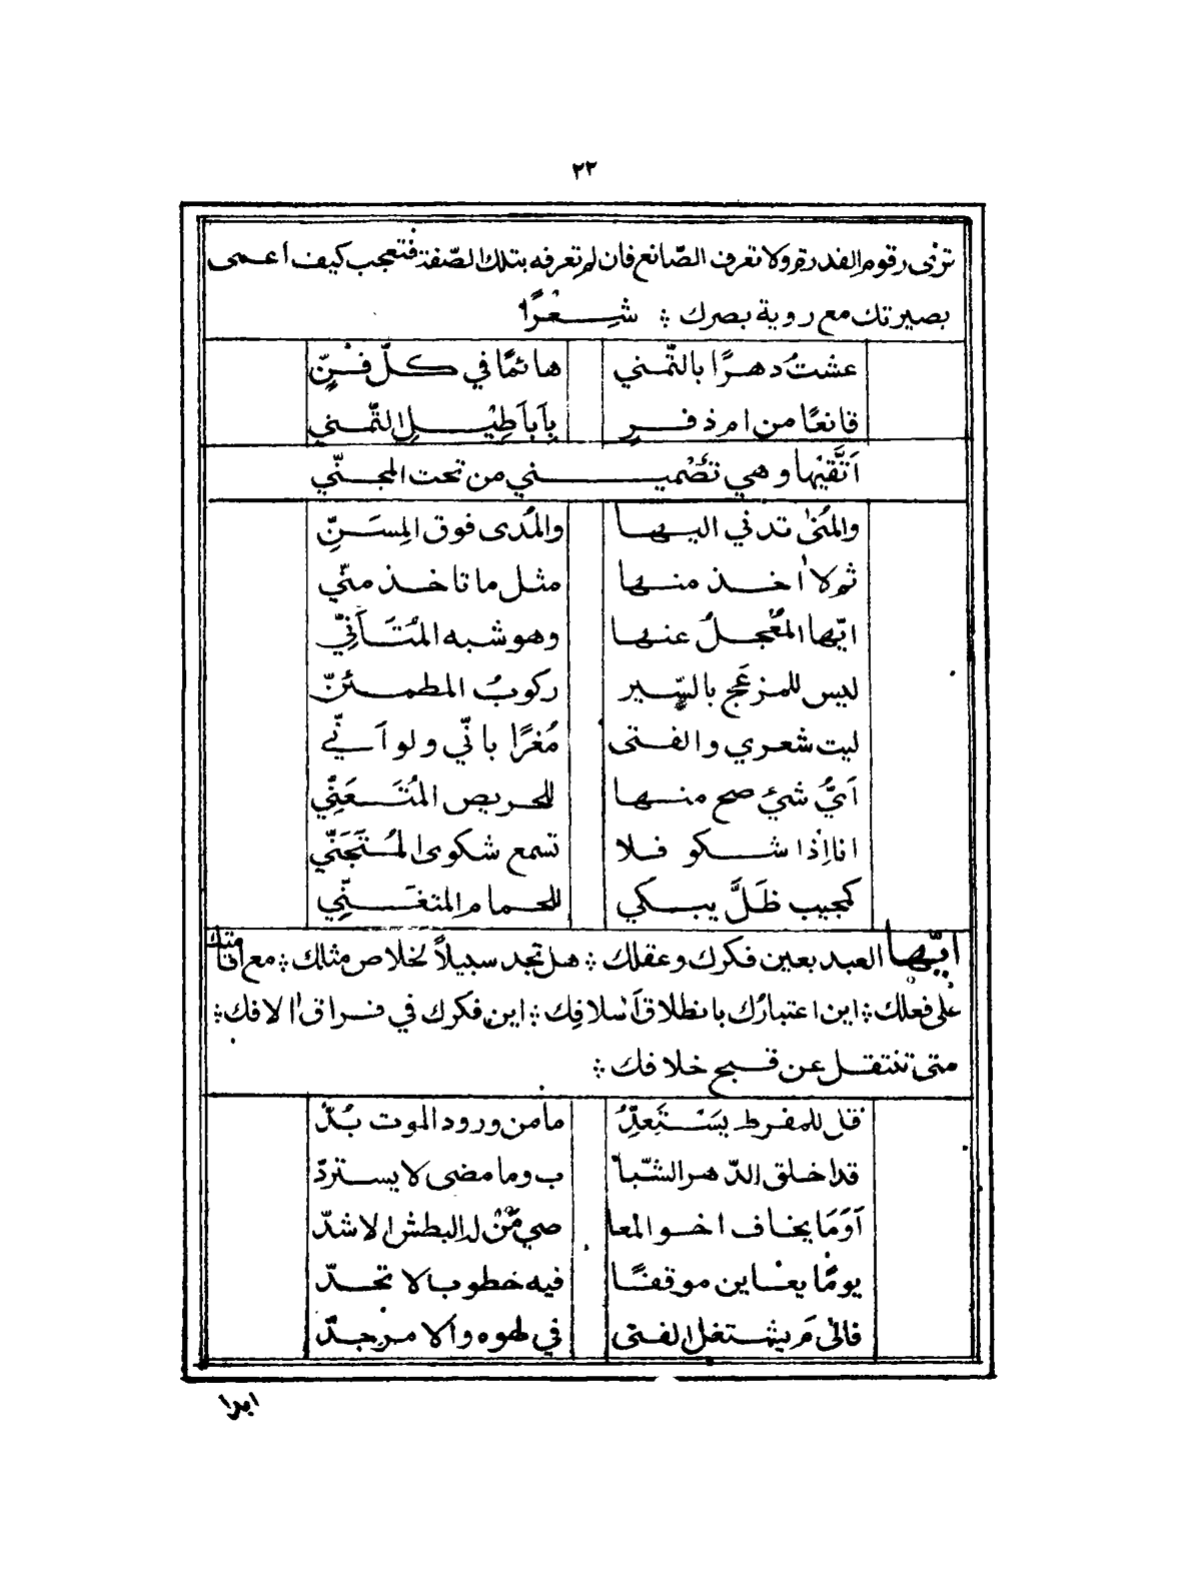 ٢٣
ترى رقوم القدرة ولا تعرف الصّانع فان لم تعرفه بتلك الصّفة فتعجب كيف اعمى
بصيرتك مع روية بصرك ؞ شِعْرًا
عشتُ دهرًا بالتّمني هائمًا في كلّ فنٍّ
قانعًا من ام ذفرٍ بِاَباَطِيْلِ التّمني
اَتَّقيْها وهي تُصْميني من تحت المجنّي
والمُنىٰ تدني اليها والمُدى فوق المِسَنِّ
ثم لا اخذ منها مثل ما تاخذ منّي
ايّها المُعْجلُ عنها وهو شبه المُتَأَنِّي
ليس للمزعَج بالسّير ركوبُ المطمئنّ
ليت شعري والفتى مُغرًا بانّي ولو اَنّي
اَيُّ شئٍ صح منها للحريص المُتَعَنِّي
انا اِذا شكو فلا تسمع شكوى المُتَجَنّي
كمجيب ظَلَّ يبكي للحمام المتغَنِّي
ايّها العبد بعين فكرك وعقلك ؞ هل تجد سبيلاً لخلاص مثلك ؞ مع اقامتك
على فعلك ؞ اين اعتبارُك بانطلاق اَسْلافِك ؞ اين فكرك في فراق اٰلافك ؞
متى تنتقل عن قبيح خلافك ؞
قل للمفرط يَسْتَعِدُّ ما من ورود الموت بُدّ
قد اخلق الدّهر الشّبا ب وما مضى لا يستردّ
اَوَمَا يخاف اخو المعا صي مَنْ له البطش الاشدّ
يومًا يعاين موقفًا فيه خطوب لا تحدّ
فالىٰ مَ يشتغل الفتى في لهوه والامر جدّ
ابدا